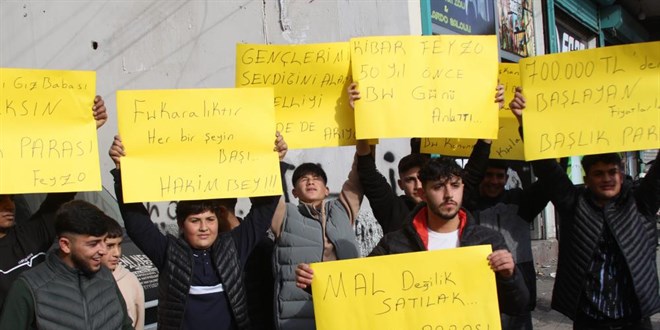 Gız Babası
KSIN
PARASI
FEYZO
FUKARALIKTIR
HER bir ŞEYİN
BAŞI...
HAKİM BEY!!!
GENÇLERİN
SEVDİĞİNİ ALA
ELLİYİ
DE
KİBAR FEYZO
50 Yıl ÖNCE
BU GÜNÜ
ANLATTI...
700.000 TL'de
BAŞLAYAN
Fiyatlarla
BAŞLIK PARA
MAL DEĞİLİK
SATILAK...
PARASI